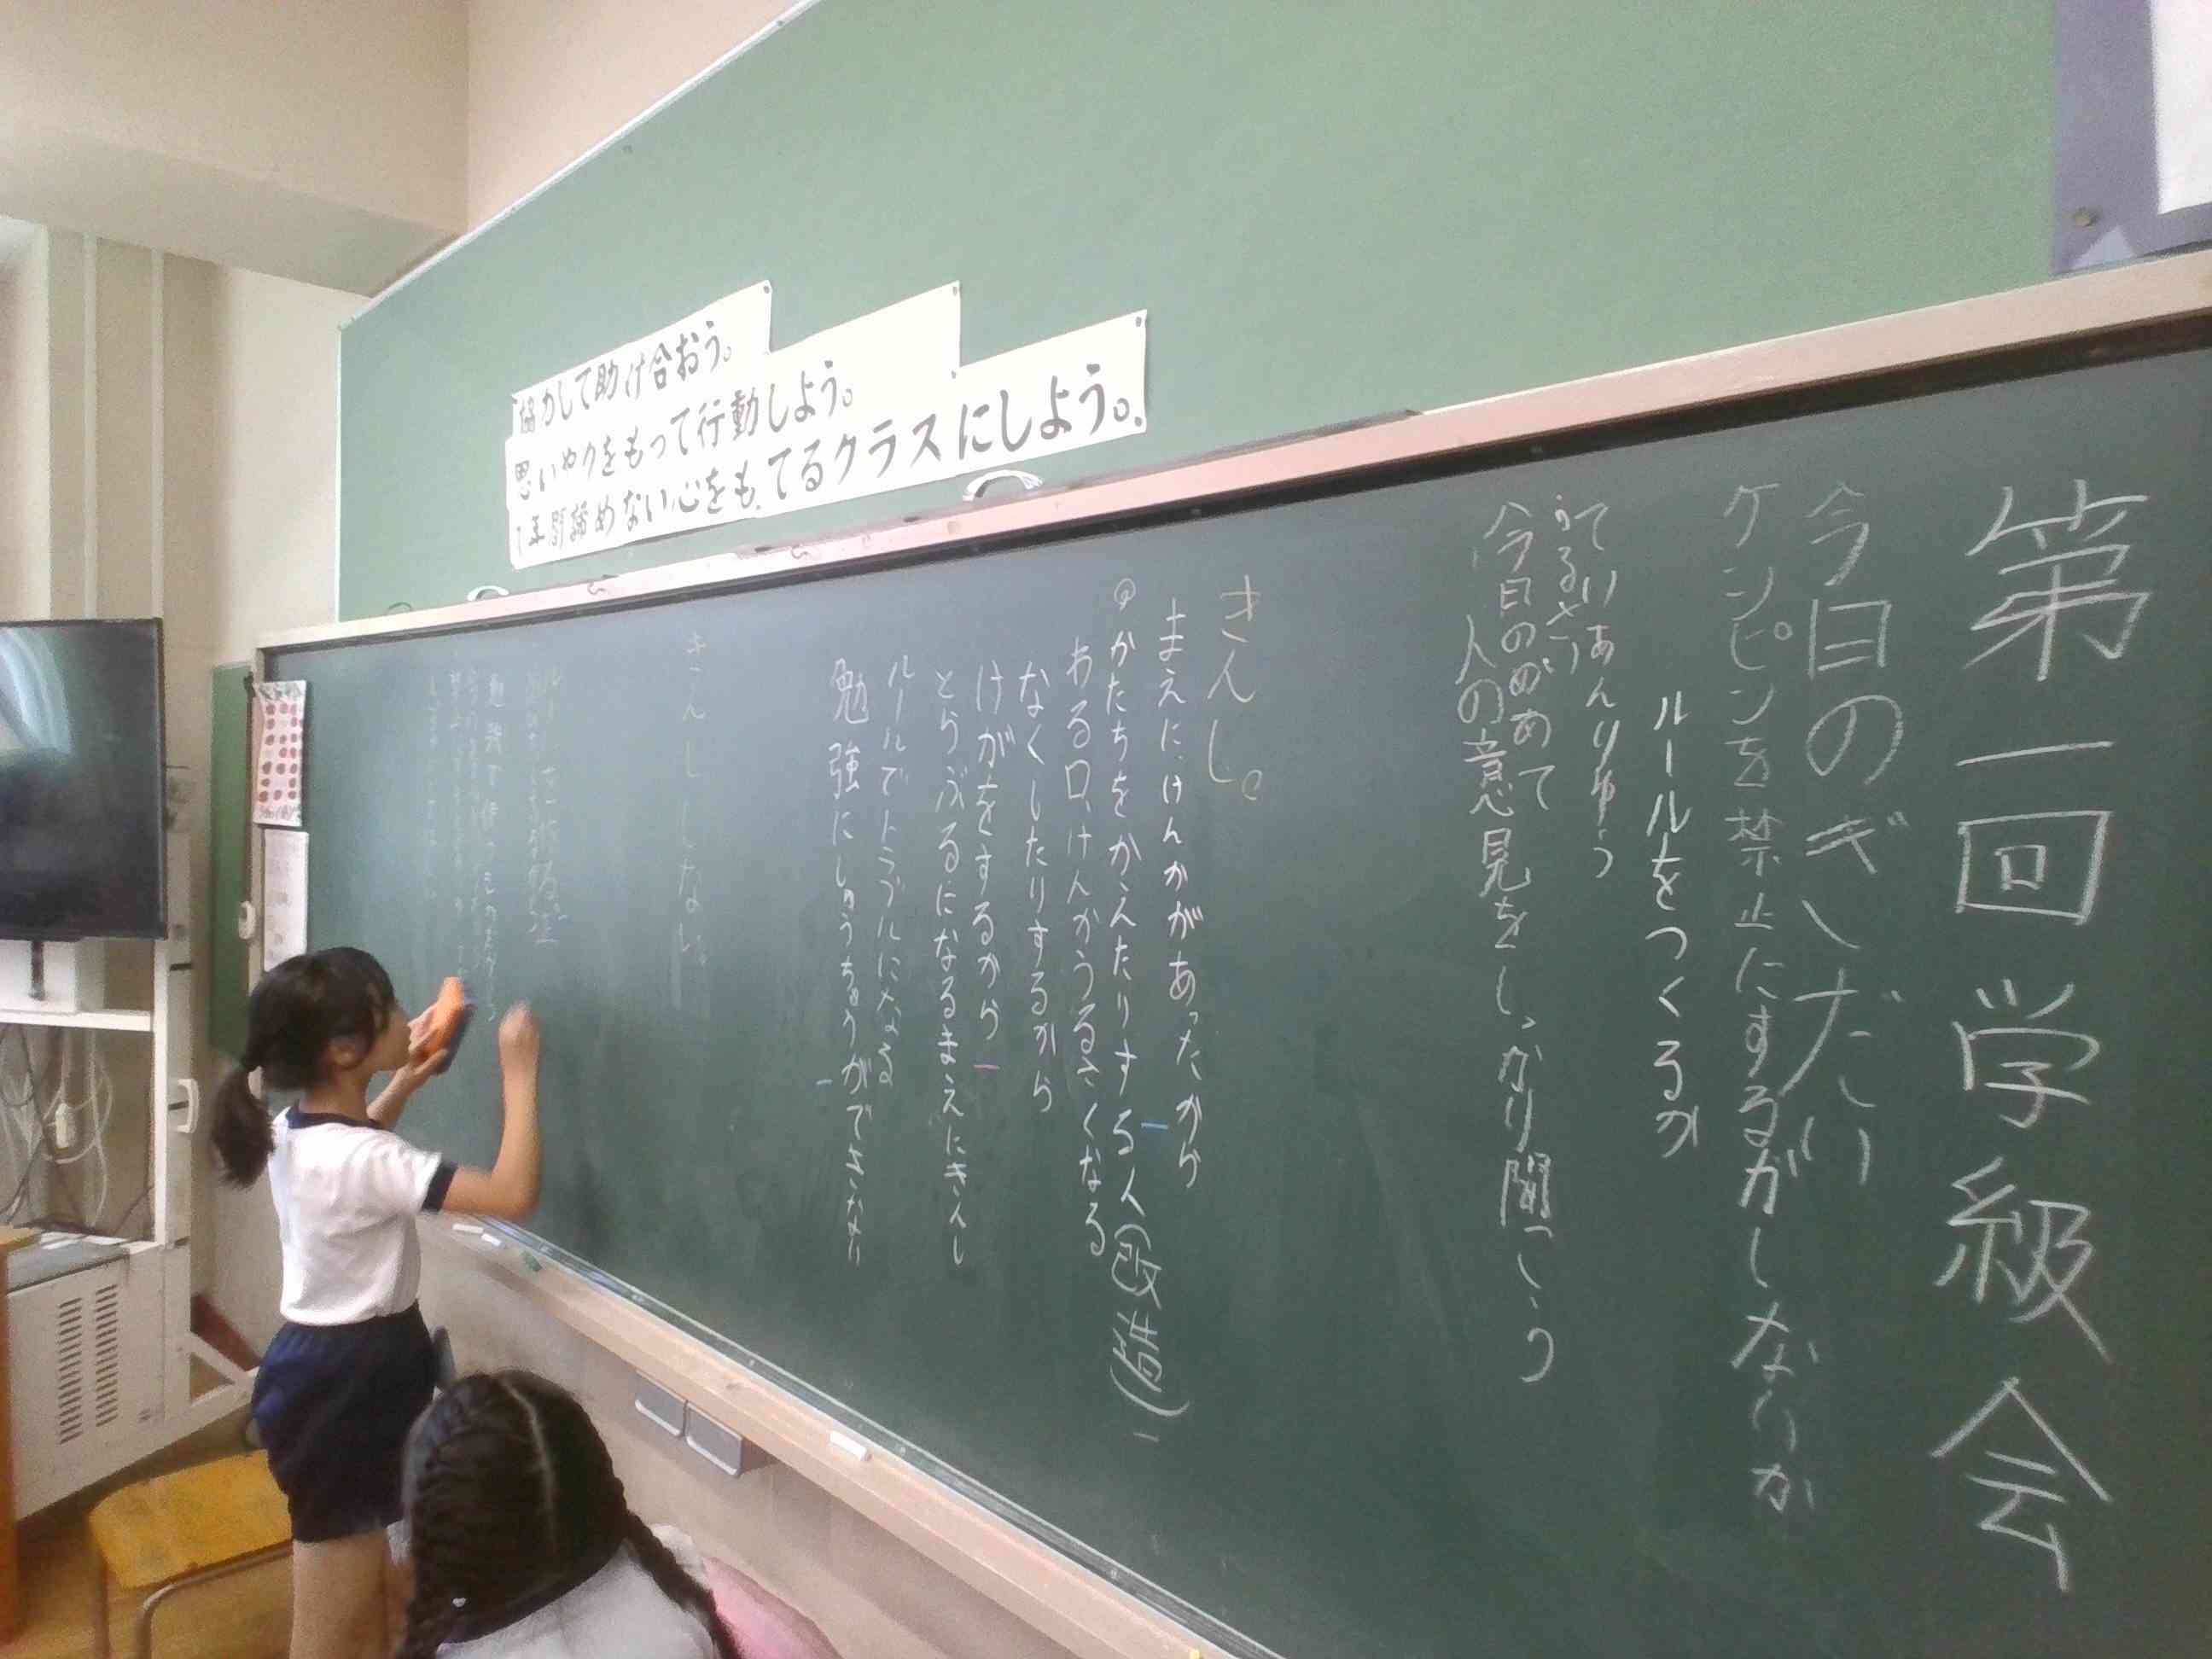 協力して助け合おう。
思いやりをもって行動しよう。
1年間諦めない心をもてるクラスにしよう。
第一回学級会
今日のぎだい
ケンピンを禁止にするがしないか
ルールをつくるか
ていあんりゆう
うるさい
今日のめあて
人の意見をしっかり聞こう
きんし。
まえにけんかがあったから
かたちをかえたりする人(改造)
ある日、けんかうるさくなる
なくしたりするから
けがをするから
とらぶるになるまえにきんし
ルールでトラブルになる
勉強にしゅうちゅうができない
きんししない。